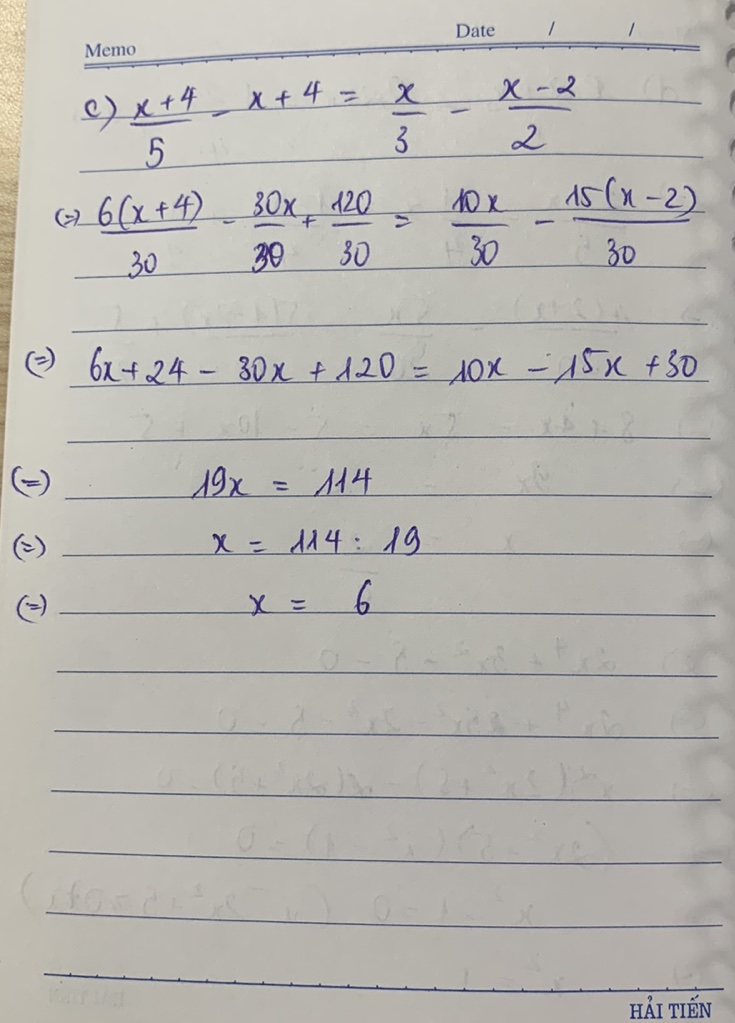 Memo Date / /
c) (x+4)/5 - x + 4 = x/3 - (x-2)/2
(=) 6(x+4)/30 - 30x/30 + 120/30 = 10x/30 - 15(x-2)/30
(=) 6x + 24 - 30x + 120 = 10x - 15x + 30
(=) 19x = 114
(=) x = 114 : 19
(=) x = 6
HẢI TIẾN